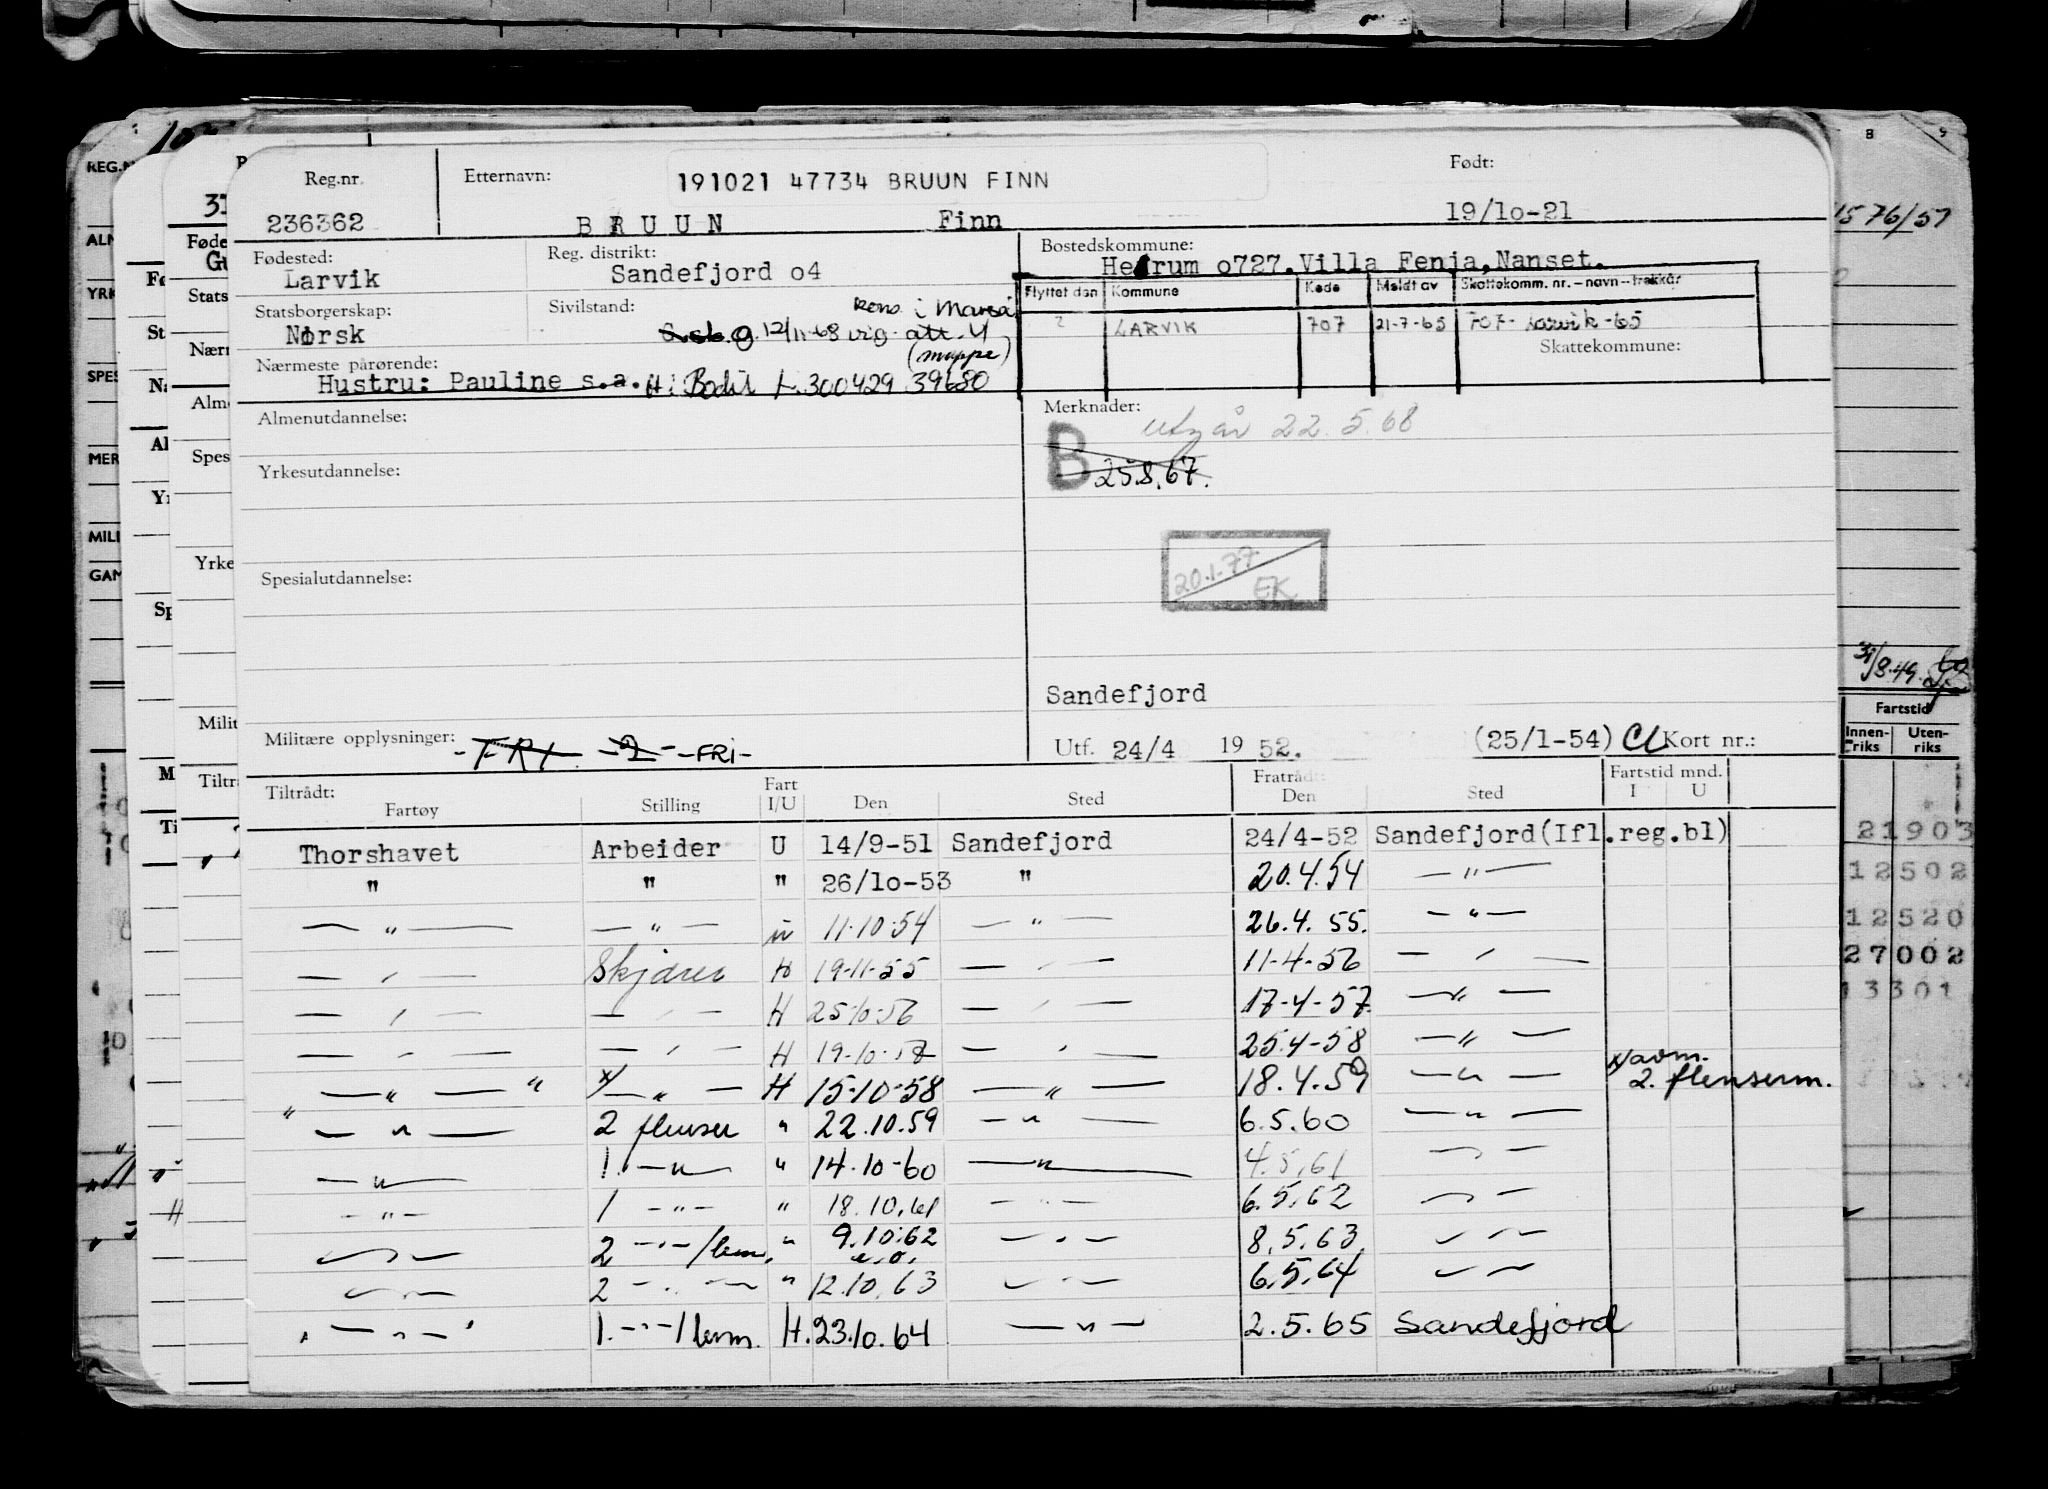 Reg.nr.
236362
Etternavn:
191021 47734 BRUUN FINN
BRUUN Finn
Født:
19/10-21
Fødested:
Larvik
Reg. distrikt:
Sandefjord o4
Bostedskommune:
Hedrum o727. Villa Fenja, Nanset.
Statsborgerskap:
Norsk
Sivilstand:
12/11-68 vig att. 4
(mappe)
Flyttet den Kommune Kode Meldt av Skattekomm. nr. – navn – trekkår
LARVIK 707 21-7-65 707- Larvik -65
Skattekommune:
Nærmeste pårørende:
Hustru: Pauline s.a. H: Bodil f. 300429 39680
Almenutdannelse:
Merknader:
Utgår 22.5.68
B 25.8.67.
Yrkesutdannelse:
20.1.77
EK
Spesialutdannelse:
Sandefjord
Militære opplysninger: -FRI- -2- -FRI-
Utf. 24/4 19 52. (25/1-54) Cl Kort nr.:
Tiltrådt: Fratrådt: Fartstid mnd.
Fartøy Stilling Fart I/U Den Sted Den Sted I U
Thorshavet Arbeider U 14/9-51 Sandefjord 24/4-52 Sandefjord(Ifl.reg.bl)
" " " 26/10-53 " 20.4.54 — " —
— " — — " — u 11.10.54 — " — 26.4.55. — " —
— " — Skjærer H 19-11-55 — " — 11-4-56 — " —
— " — — " — H 25-10-56 — " — 17-4-57 — " —
— " — — " — H 19-10-57 — " — 25.4-58 — " —
— " — " x/ — " — H 15-10-58 — " — 18.4.59 — " — x/ avm. 2. flenserm.
" — " — 2 flenser " 22.10.59 — " — 6.5.60 — " —
— " — 1. — " — " 14-10-60 — " — 4.5.61 — " —
— " — 1 — " — " 18.10.61 — " — 6.5.62 — " —
— " — 2 — " — /lem. " 9.10.62 — " — 8.5.63 — " —
— " — 2 — " — " 12.10.63 — " — 6.5.64 — " —
— " — 1. — " — /lem. H. 23.10.64 — " — 2.5.65 Sandefjord
8 9
1576/57
31/8.49.
Fartstid
Innen-riks Uten-riks
21903
12502
12520
27002
13301
REG.N
YRK
SPES
MER
MILI
GAM
Føde
Stats
Nærm
Alme
Spes
Yrke
Milit
Tiltr